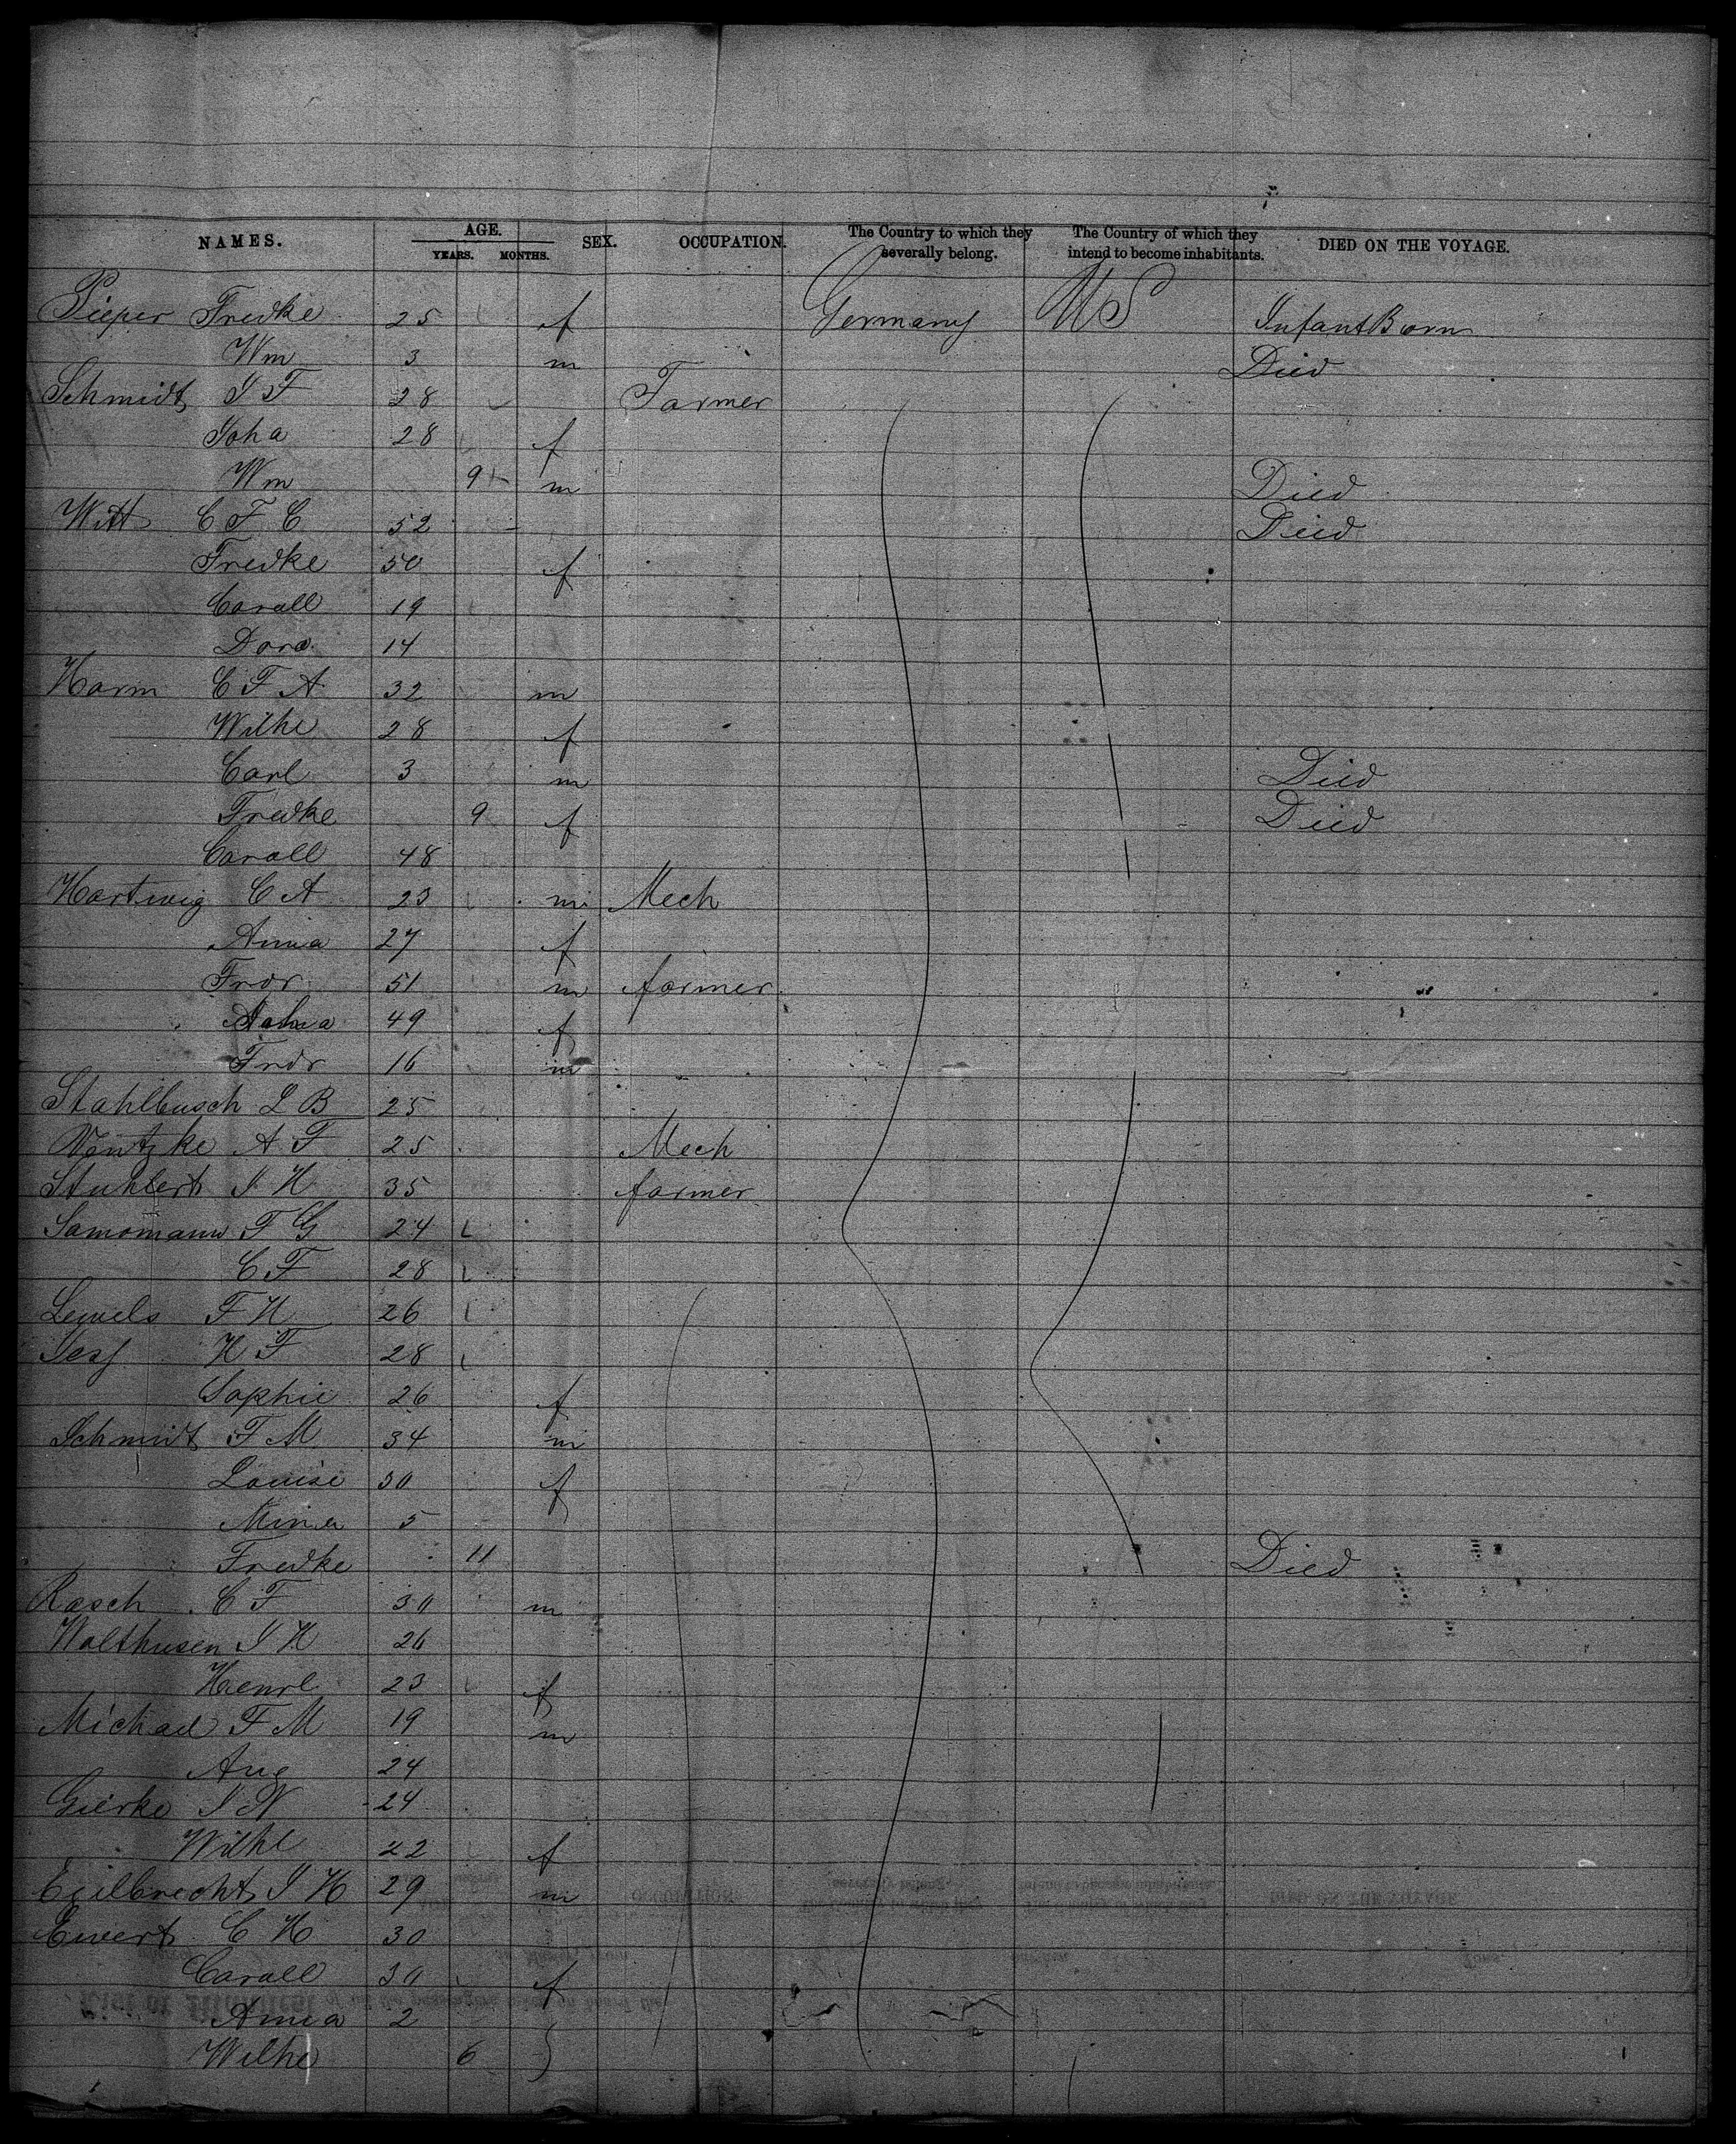 NAMES. AGE. YEARS. MONTHS. SEX. OCCUPATION. The Country to which they severally belong. The Country of which they intend to become inhabitants. DIED ON THE VOYAGE.
Pieper Fredke 25 f Germany US Infant Born
Wm 3 m Died
Schmidt J F 28 Farmer
Joha 28 f
Wm 9 m Died
Witt C F C 52 Died
Fredke 50 f
Caroll 19
Dora 14
Harm C F A 32 m
Wilhe 28 f
Carl 3 m Died
Fredke 9 f Died
Caroll 48
Hartwig C A 23 m Mech
Anna 27 f
Frdr 51 m farmer
49 f
Frdr 16 m
Stahlbusch L B 25
A F 25 Mech
Stuhlert J H 35 farmer
F G 24
C F 28
F H 26
H F 28
Sophie 26 f
Schmidt F M 34 m
Louise 30 f
Mina 5
Fredke 11 Died
Rasch C F 30 m
Walthusen J H 26
Henrl 23 f
Michael F M 19 m
Aug 24
Gierke J N 24
Wilhl 22 f
J H 29 m
Ewert C H 30
Caroll 30 f
Anna 2
Wilhe 6